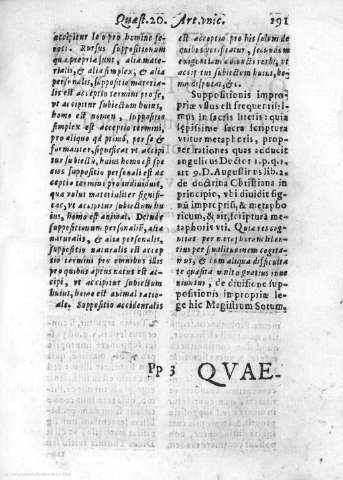 Quæst. 20. Art. vnic. 291
accipitur lo o pro homine fe-
roci. Rursus suppositionum
quæ propriæ sunt, alia mate-
rialis, & alia simplex, & alia
personalis, suppositio materia-
lis est acceptio termini pro se,
vt accipitur subiectum huius,
homo est nomen, suppositio
simplex est acceptio termini,
pro aliquo qd primò, per se &
formaliter, significat vt accipi-
tur subiectũ, huius homo est spe
cies suppositio personalis est ac
ceptio termini pro indiuiduis,
quæ volut materialiter signifi-
cat, vt accipitur subiectum hu-
ius, homo est animal. Deinde
suppositionum personaliũ, alia
naturalis, & alia personalis,
suppositio naturalis est accep
tio termini pro omnibus illis
pro quibus apens natus est ac-
cipi, vt accipitur subiectum
huius, homo est animal ratio-
nale. Suppositio accidentalis
est acceptio pro his solum de
quibus verificatur, secundum
exigentiam adiuncti verbi, vt
accipitur subiectum huius, ho-
mo disputat, &c.
Suppositionis impro-
priæ vsus est frequentissi-
mus in sacris literis: quia
sæpissime sacra scriptura
vtitur metaphoris, prop-
ter rationes quas adducit
angelicus Doctor 1. p. q. 1.
art 9. D. Augustinus lib. 2.
de doctrina Christiana in
principio, vbi diuidit sig-
nũ in propriũ, & metapho
ricum, & ait, scripturã me
taphoris vti. Quia res cog-
nitas per similitudinem cogita-
mus, & cum aliqua difficulta
te quæsita multo gratius inue
niuntur, de diuisione sup-
positionis impropriæ le-
ge hic Magistrum Sotum.
Pp 3 QVAE-